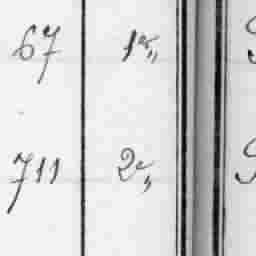 67 1r„
711 2e„